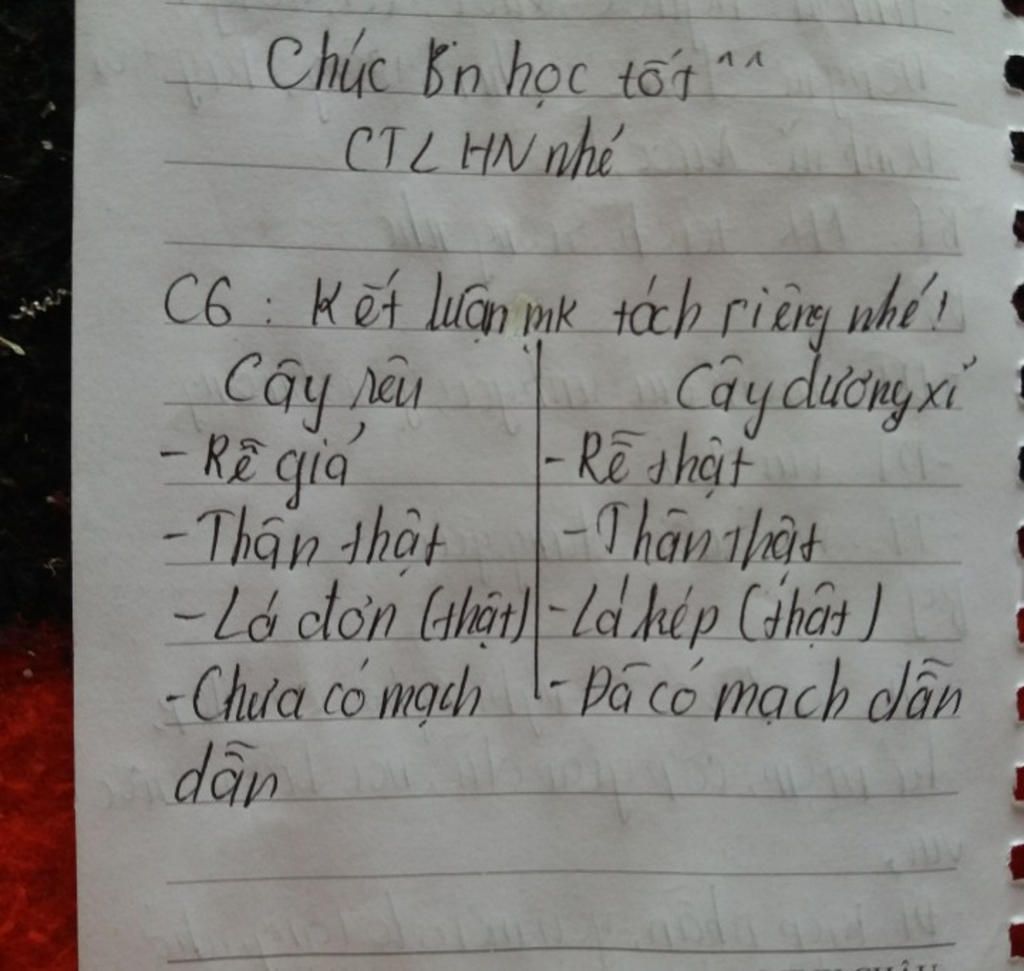 Chúc Bn học tốt ^^
CTLHN nhé
C6 : Kết luận mk tách riêng nhé!
Cây rêu
- Rễ giả
- Thân thật
- Lá đơn (thật)
- Chưa có mạch
dẫn
Cây dương xỉ
- Rễ thật
- Thân thật
- Lá kép (thật)
- Đã có mạch dẫn